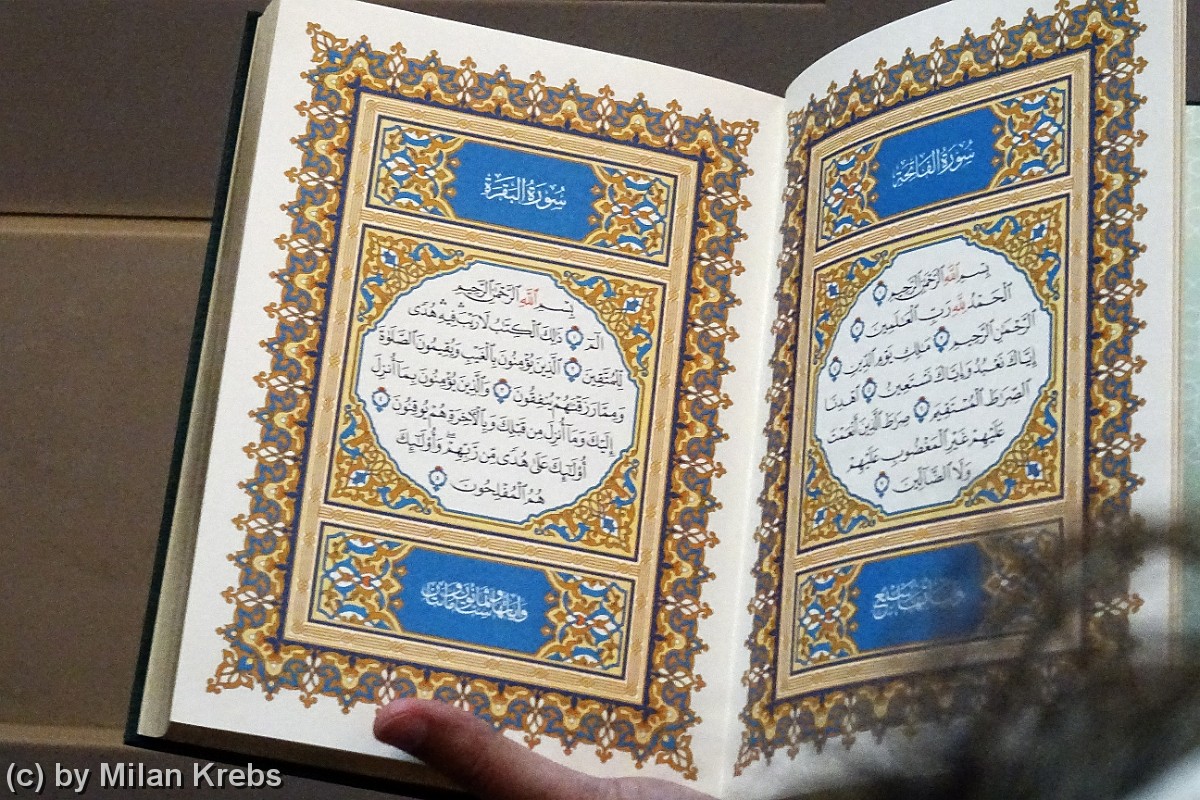 سُورَةُ الفَاتِحَةِ
بِسْمِ اللَّهِ الرَّحْمَٰنِ الرَّحِيمِ ١
الْحَمْدُ لِلَّهِ رَبِّ الْعَٰلَمِينَ ٢
الرَّحْمَٰنِ الرَّحِيمِ ٣ مَٰلِكِ يَوْمِ الدِّينِ ٤
إِيَّاكَ نَعْبُدُ وَإِيَّاكَ نَسْتَعِينُ ٥ اهْدِنَا
الصِّرَاطَ الْمُسْتَقِيمَ ٦ صِرَاطَ الَّذِينَ أَنْعَمْتَ
عَلَيْهِمْ غَيْرِ الْمَغْضُوبِ عَلَيْهِمْ
وَلَا الضَّالِّينَ ٧
وآياتها سبع
سُورَةُ البَقَرَةِ
بِسْمِ اللَّهِ الرَّحْمَٰنِ الرَّحِيمِ
الٓمٓ ١ ذَٰلِكَ الْكِتَٰبُ لَا رَيْبَۛ فِيهِۛ هُدًى
لِّلْمُتَّقِينَ ٢ الَّذِينَ يُؤْمِنُونَ بِالْغَيْبِ وَيُقِيمُونَ الصَّلَوٰةَ
وَمِمَّا رَزَقْنَٰهُمْ يُنفِقُونَ ٣ وَالَّذِينَ يُؤْمِنُونَ بِمَا أُنزِلَ
إِلَيْكَ وَمَا أُنزِلَ مِن قَبْلِكَ وَبِالْآخِرَةِ هُمْ يُوقِنُونَ ٤
أُولَٰئِكَ عَلَىٰ هُدًى مِّن رَّبِّهِمْ وَأُولَٰئِكَ
هُمُ الْمُفْلِحُونَ ٥
وآياتها ست وثمانون ومائتان
(c) by Milan Krebs